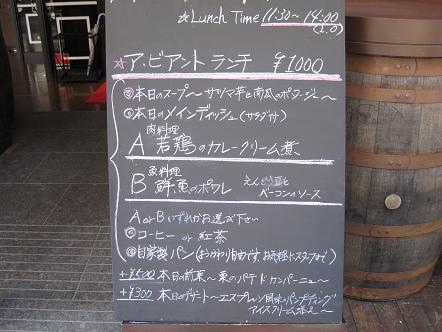 ☆Lunch Time 11:30～14:00
(L.O)
☆ア・ビアント ランチ ¥1000
◎本日のスープ～サツマ芋と南瓜のポタージュ～
◎本日のメインディッシュ(サラダ付)
肉料理
A 若鶏のカレークリーム煮
魚料理
B 鮮魚のポワレ えんどう豆と
ベーコンのソース
A or B いずれかお選び下さい
◎コーヒー or 紅茶
◎自家製パン(おかわり自由です。お気軽にスタッフまで)
+¥500 本日の前菜～栗のパテドカンパーニュ～
+¥300 本日のデザート～エスプレッソ風味のパンプディング
アイスクリーム添え～